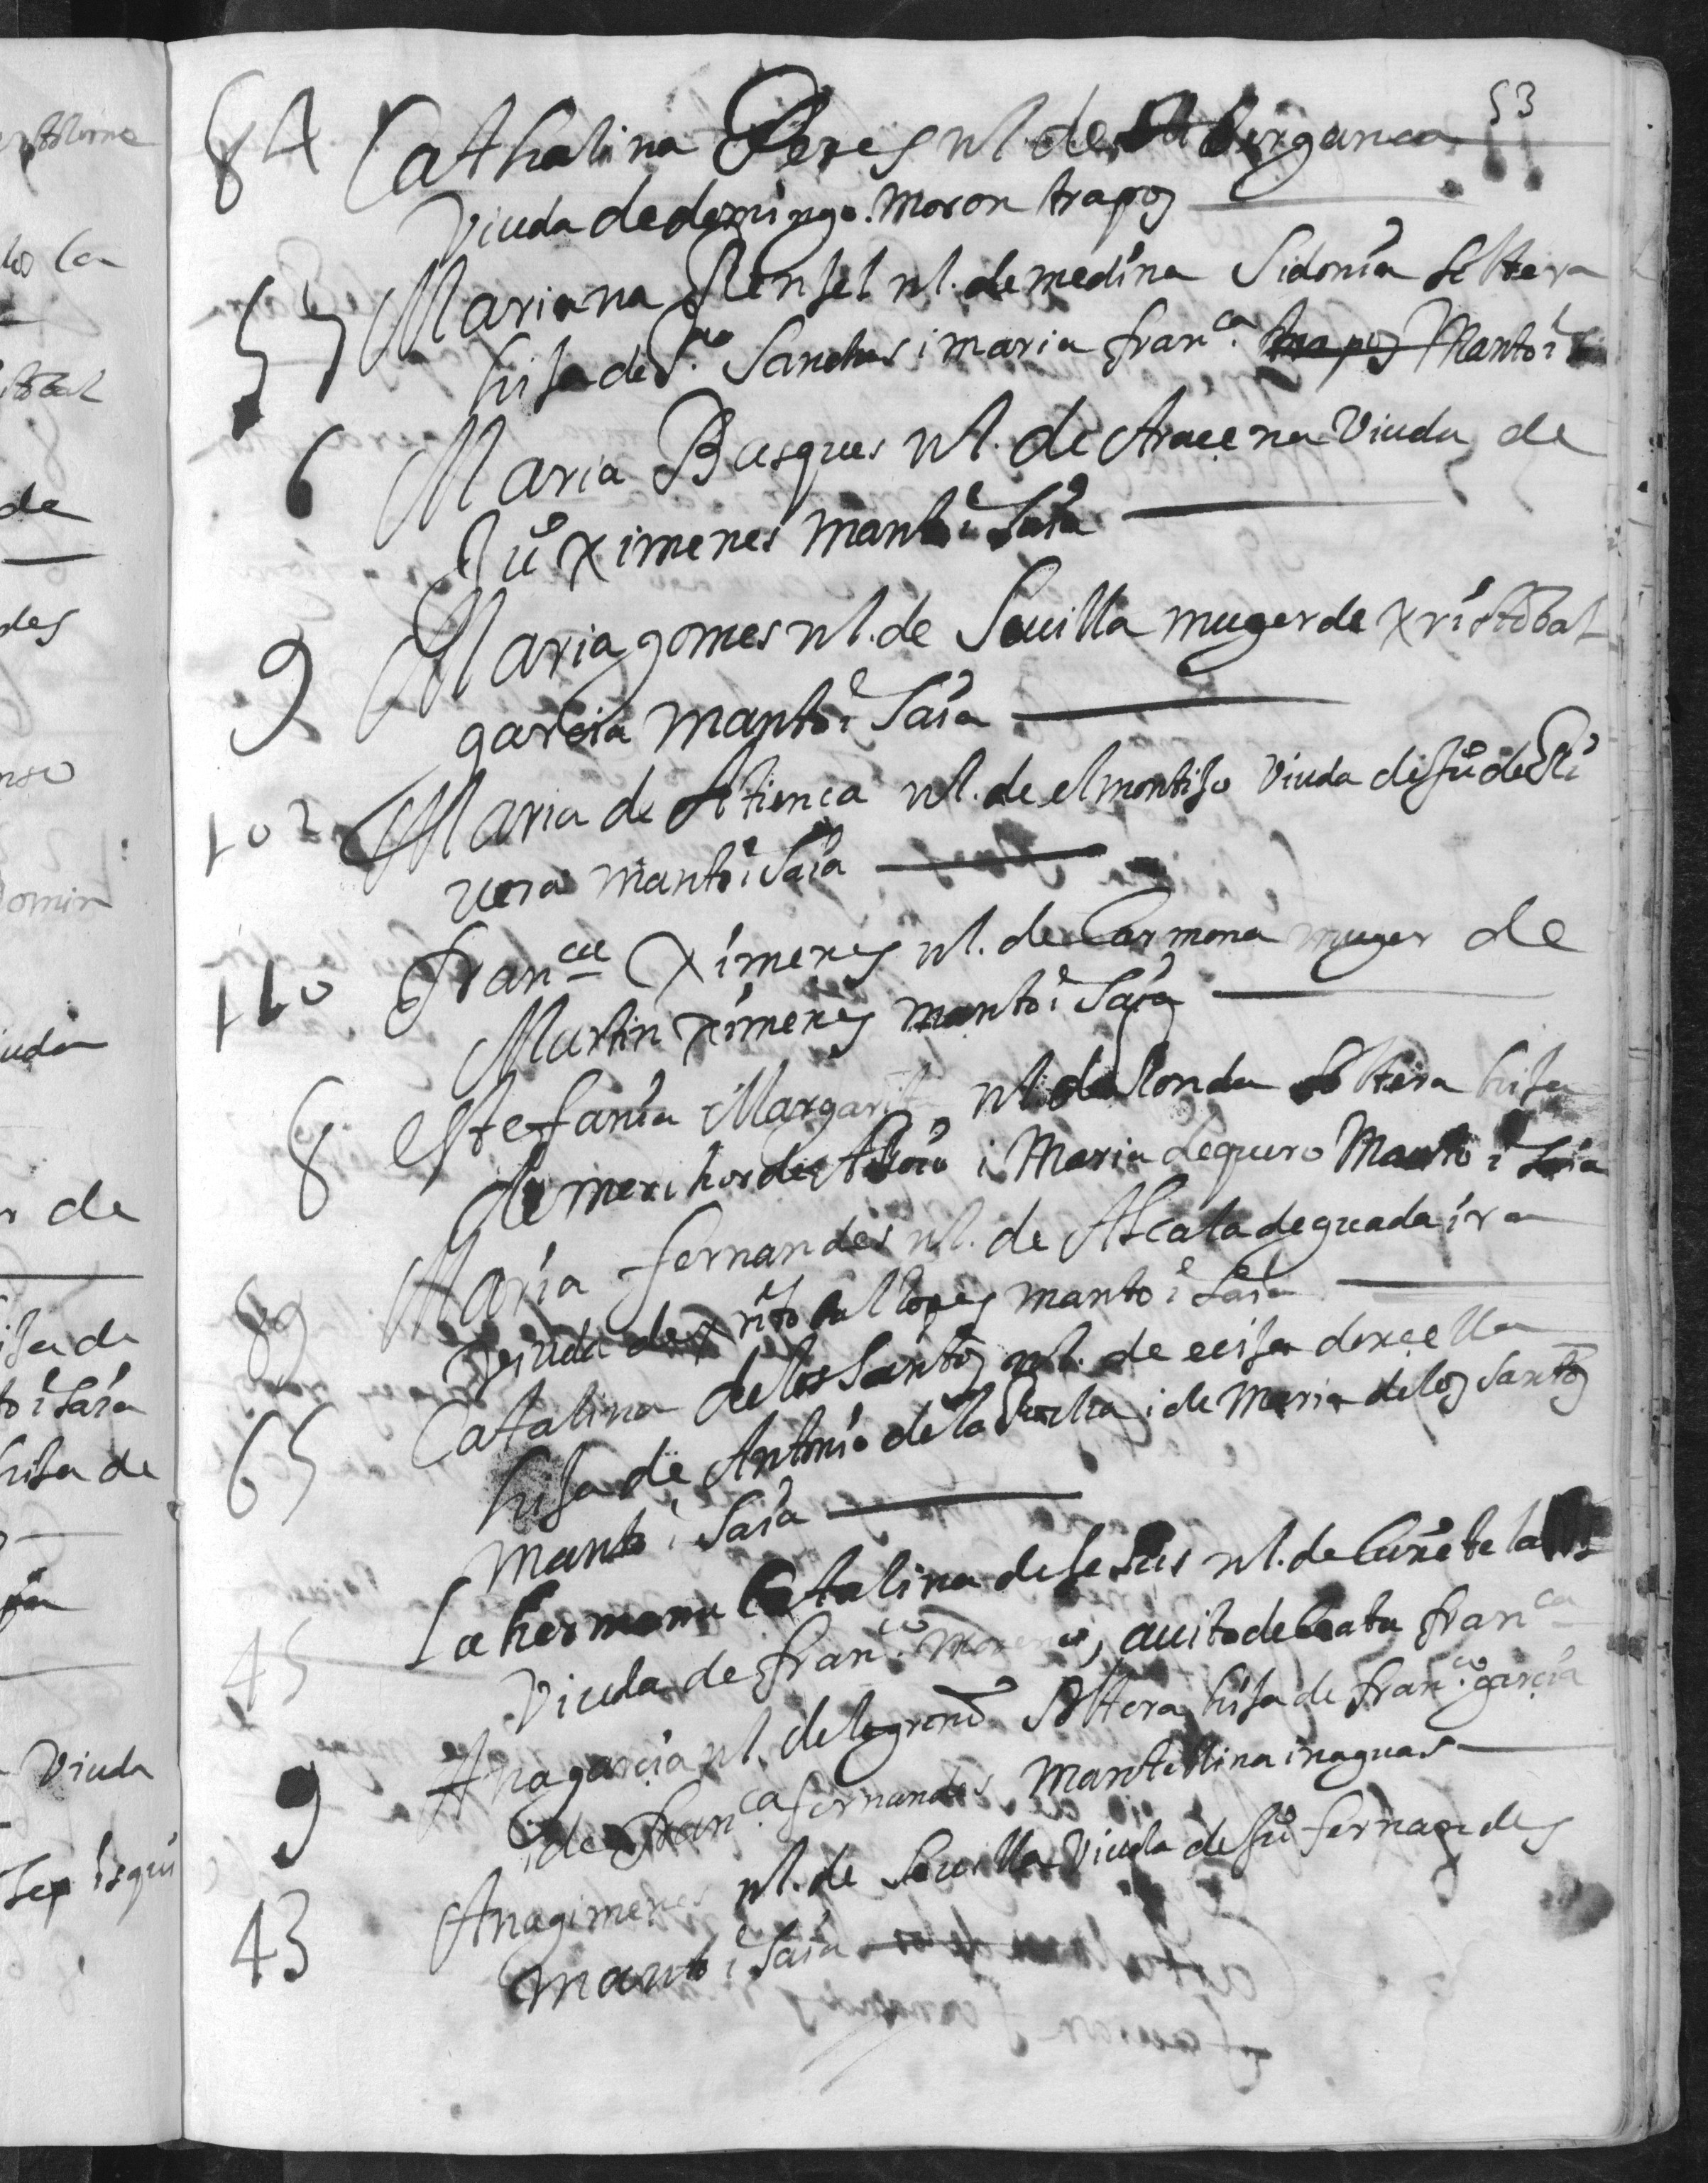 53
84 Cathalina Peres nl. de Berganca
Viuda de domingo. Moron trapos
55 Mariana Rensel nl. de medina Sidonia soltera
hija de P.º Sanches i maria fran.ca trapos Manto i
6 Maria Basques nl. de Aracena Viuda de
Ju.º Ximenes manto i saia
9 Maria gomes nl. de Seuilla muger de Xristobal
garcia manto i Saia
102 Maria de Atienca nl. de el montijo Viuda de Ju.º de Ri
uera manto i saia
110 Fran.ca Ximenes nl. de Carmona muger de
Martin Ximenes manto i Saia
8 estefania Margarita nl. de Ronda soltera hija
de i Maria Manto i saia
89 Maria fernandes nl. de Alcala de guadaira
Viuda de xristobal lopes manto i saia
65 Catalina de los Santos nl. de ecija doncella
hija de Antonio de la Rocha i de Maria de los Santos
Manto i Saia
45 La hermana Catalina de Jesus nl. de Cañete la
Viuda de fran.co Moreno, auito de beata fran.ca
9 Ana garcia nl. de logroño soltera hija de fran.co garcia
i de fran.ca fernandes Mantellina inaguas
43 Ana gimenes nl. de Seuilla Viuda de Ju.º fernandes
manto i saia